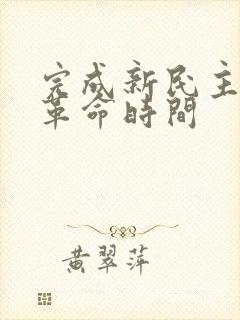 完成新民主
革命時間
黄翠萍